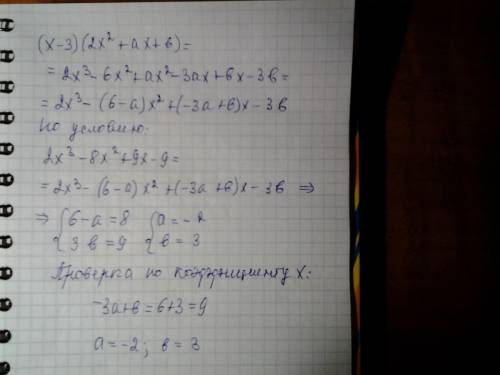 (x-3)(2x²+ax+в)=
=2x³-6x²+ax²-3ax+вx-3в=
=2x³-(6-a)x²+(-3a+в)x-3в
По условию:
2x³-8x²+9x-9=
=2x³-(6-a)x²+(-3a+в)x-3в ⇒
⇒ {6-a=8 {a=-2
{3в=9 {в=3
Проверка по коэффициенту x:
-3a+в=6+3=9
a=-2; в=3